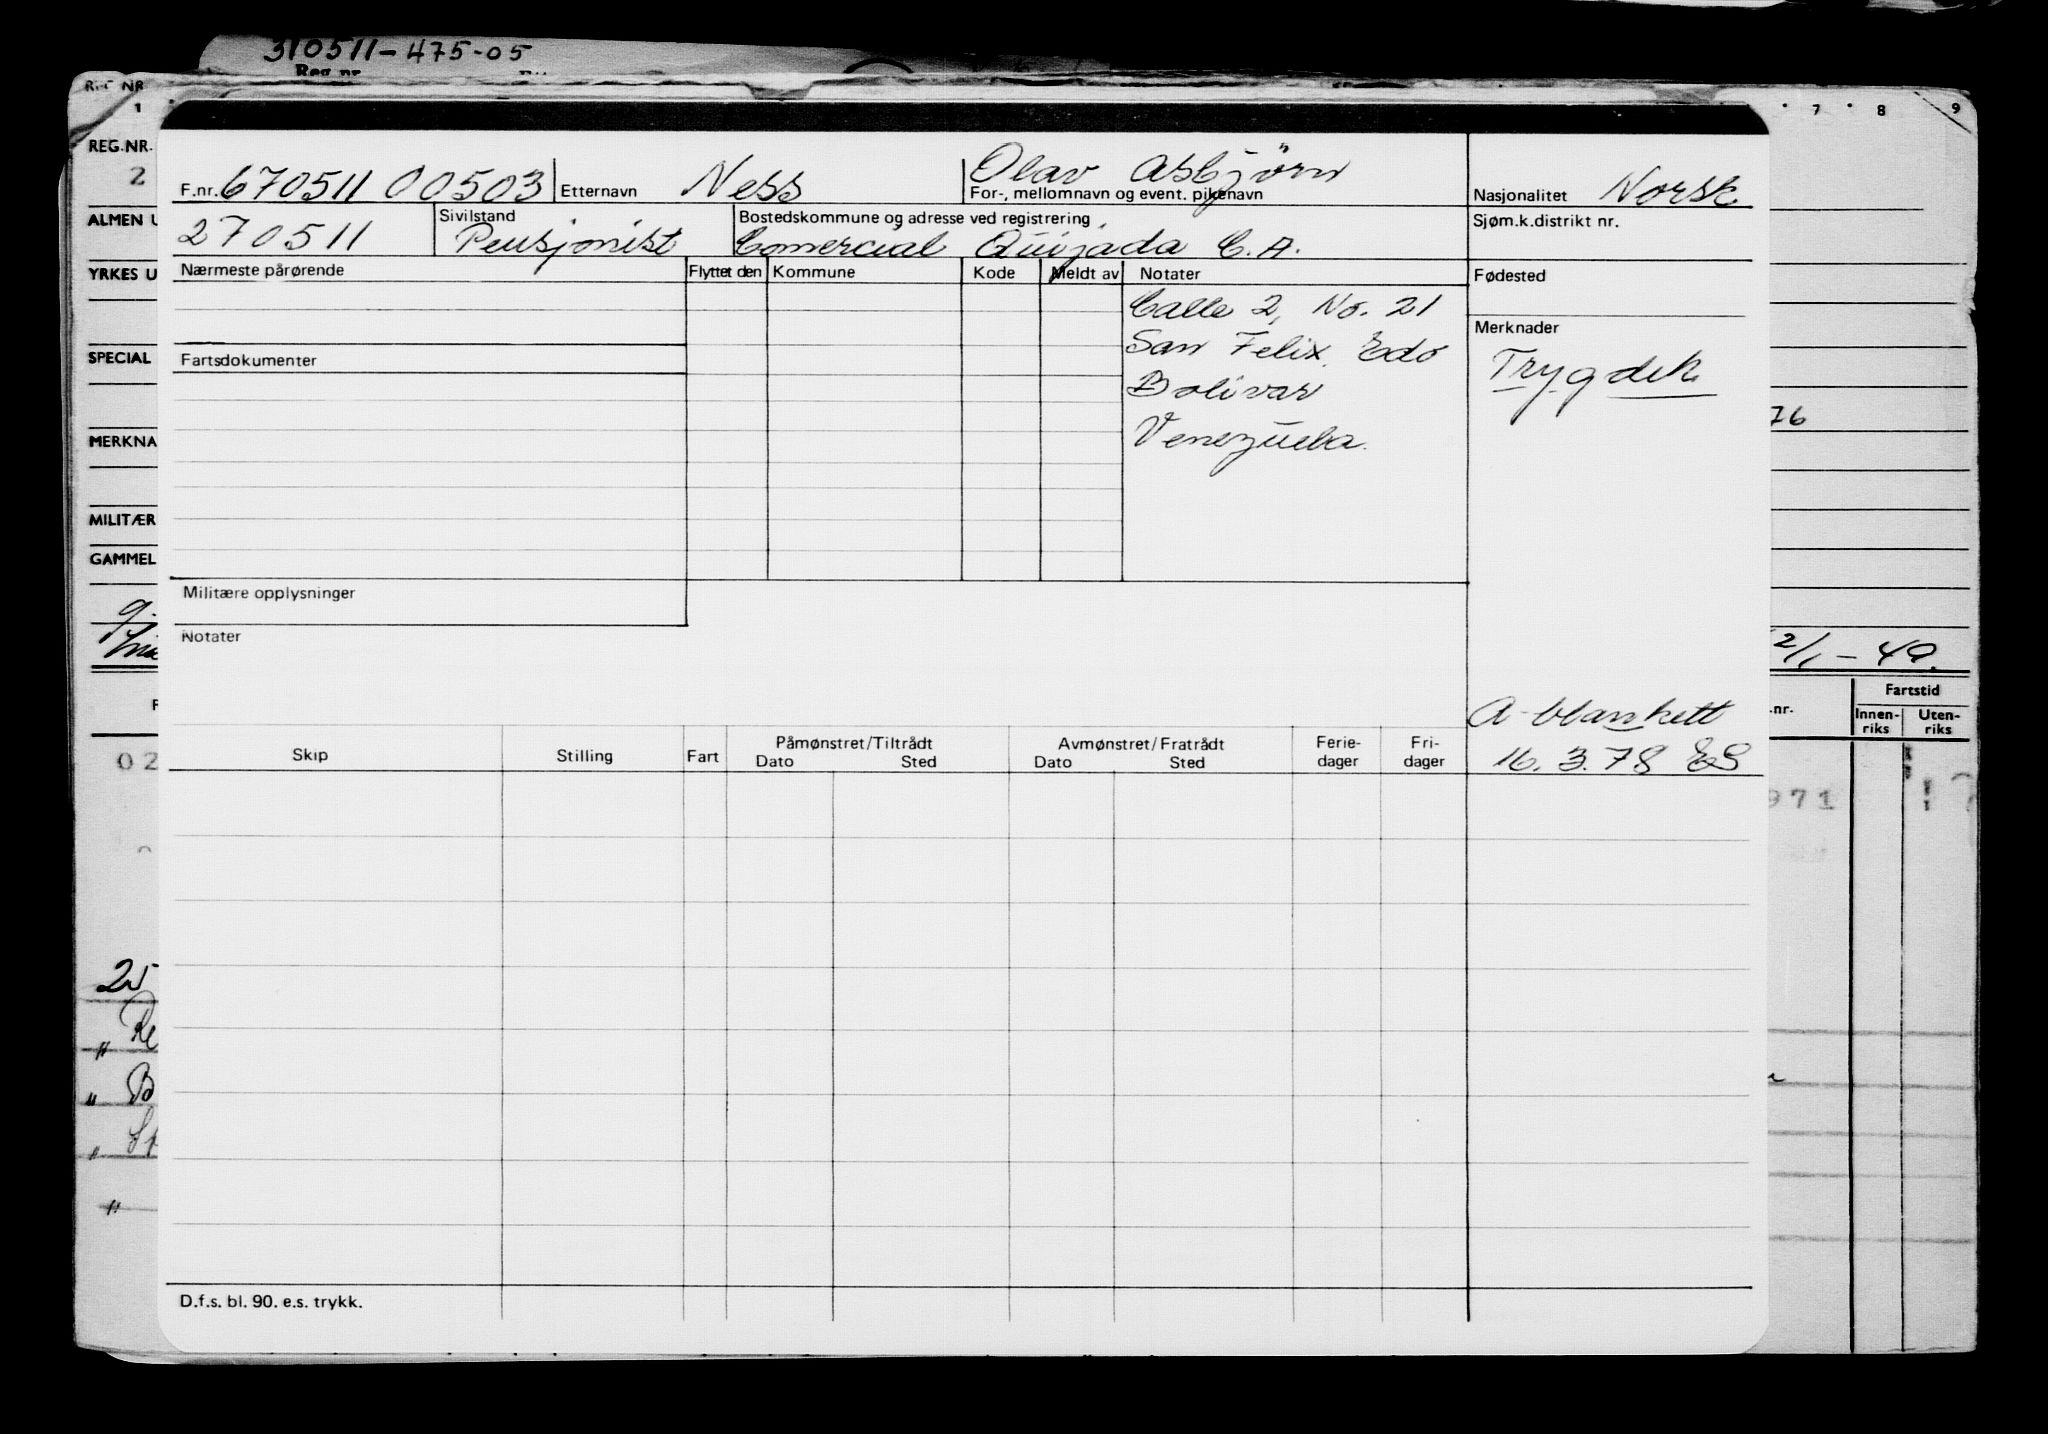 310511-475-05
Reg.nr.
REG NR
1 7 8 9
REG.NR.
2
F.nr. 670511 00503 Etternavn Ness Olav Asbjörn
For-, mellomnavn og event. pikenavn
Nasjonalitet Norsk
ALMEN U
270511 Sivilstand Pensjonist
Bostedskommune og adresse ved registrering
Comercial Quijada C.A.
Sjøm.k.distrikt nr.
YRKES U
Nærmeste pårørende Flyttet den Kommune Kode Meldt av Notater Fødested
Calle 2, No. 21
Merknader
San Felix, Edo
SPECIAL
Fartsdokumenter
Trygdek
Bolivar
76
MERKNA
Venezuela.
MILITÆR
GAMMEL
Militære opplysninger
Notater
2/1 - 40.
Fartstid
.nr. Innen-riks Uten-riks
A-blankett
16.3.78 ES
Skip Stilling Fart Påmønstret/Tiltrådt Avmønstret/Fratrådt Ferie-dager Fri-dager
Dato Sted Dato Sted
02
971
25
" Re
" B
"
"
D.f.s. bl. 90. e.s. trykk.